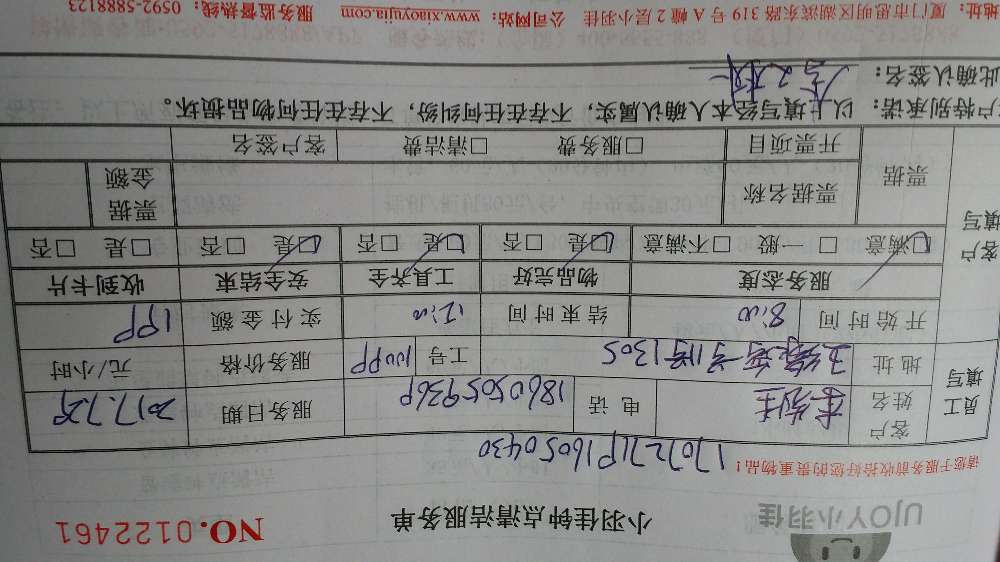 UJOY小羽佳
小羽佳钟点清洁服务单
NO.0122461
请您于服务前收拾好您的贵重物品！
员工填写
客户姓名
李先生
电话
服务日期
2017.7.29
地址
1305
工号
服务价格
元/小时
开始时间
8:00
结束时间
12:00
实付金额
客户填写
服务态度
物品完好
工具齐全
安全结束
收到卡片
☑满意 □一般 □不满意
☑是 □否
☑是 □否
☑是 □否
□是 □否
票据
票据名称
票据金额
开票项目
□服务费 □清洁费
客户签名
户特别承诺：以上填写经本人确认属实，不存在任何纠纷，不存在任何物品损坏。
此确认签名：
地址：厦门市思明区湖滨东路319号A幢2层小羽佳 公司网站：www.xiaoyujia.com 服务监督热线：0592-5888123